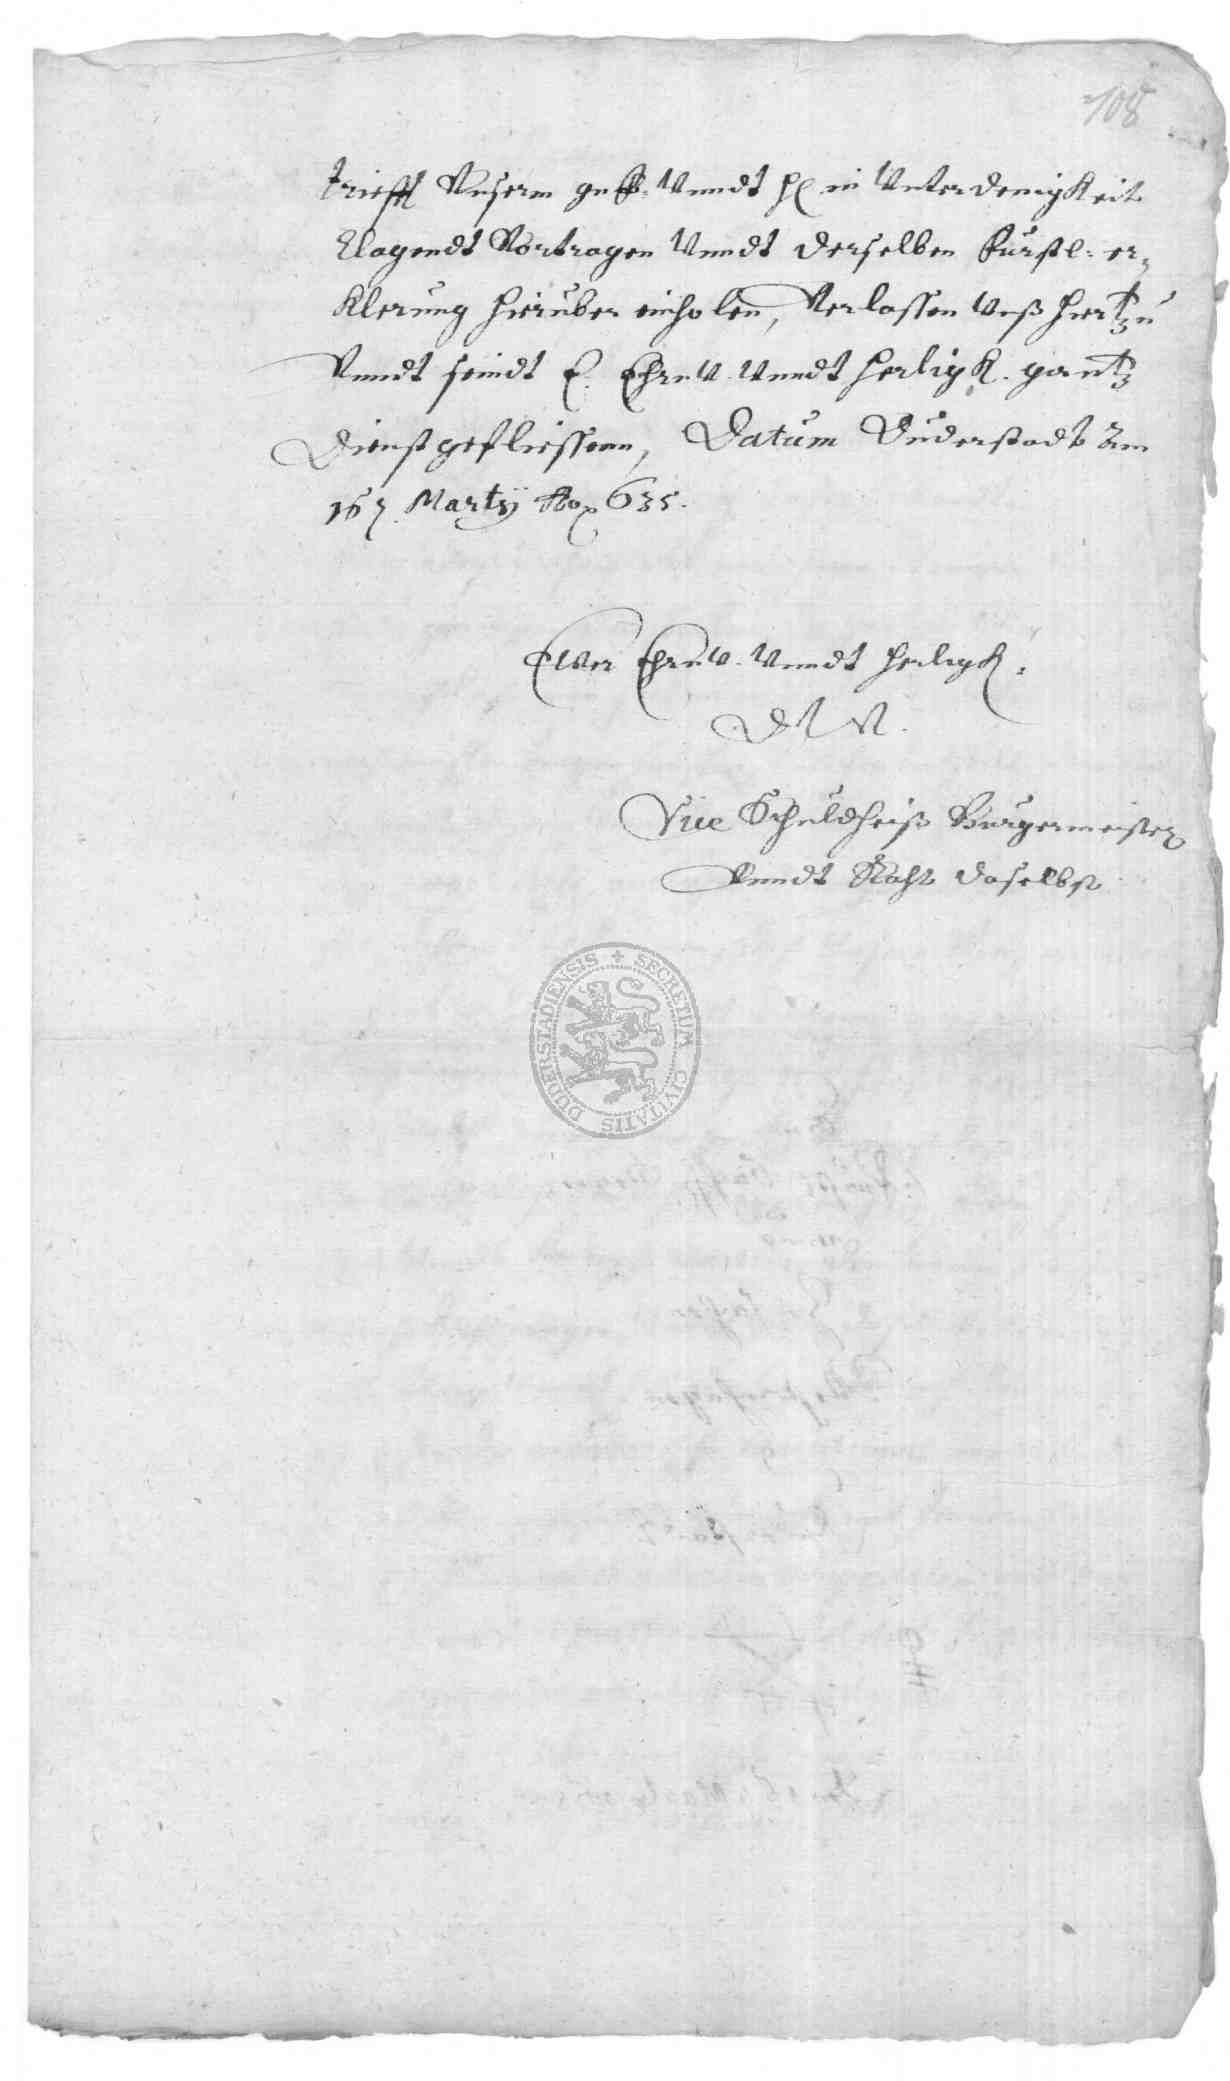 108
trieffl Unserm gnd: Unndt H in Unterdenigkeit
Clagendt Vortragen Unndt derselben Fürstl: er-
klerung hierüber einholen, Verlassen Unß hiertzu
Unndt seindt E. EhrnV. Unndt Herligk. gantz
dienstgefliessenn, Datum Duderstadt Am
16 Martij Ao 635.
Ewer EhrnV. Unndt Herligk.
Vice Schuldheiß Bürgermeister
Unndt Raht daselbst
SECRETUM CIVITATIS DUDERSTADIENSIS